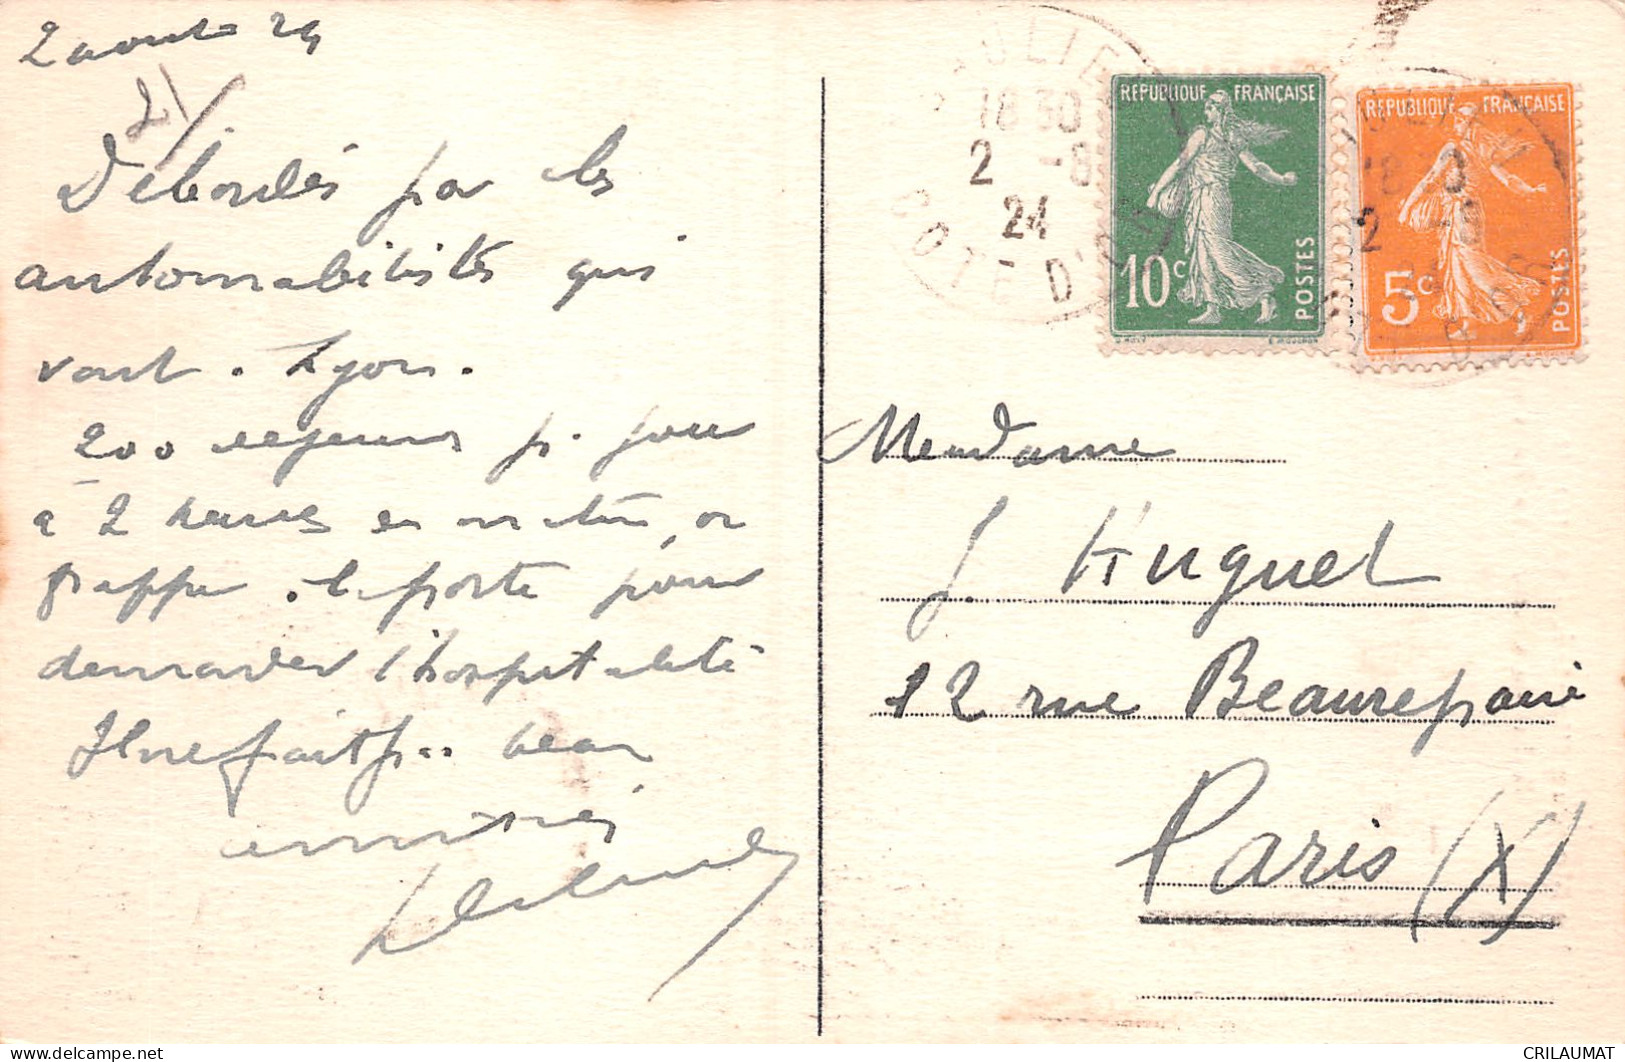 2 aout 24
21
Débordés par les
automobilistes qui
vont à Lyon.
200 déjeuners p. jour
à 2 heures du matin, on
frappe à la porte pour
demander l'hospitalité
Il ne fait pas beau
amitiés
RÉPUBLIQUE FRANÇAISE
10c
POSTES
RÉPUBLIQUE FRANÇAISE
5c
POSTES
18 30
2 -8
24
COTE D'OR
Madame
J. Huguet
12 rue Beaurepaire
Paris (X)
delcampe.net
CRILAUMAT